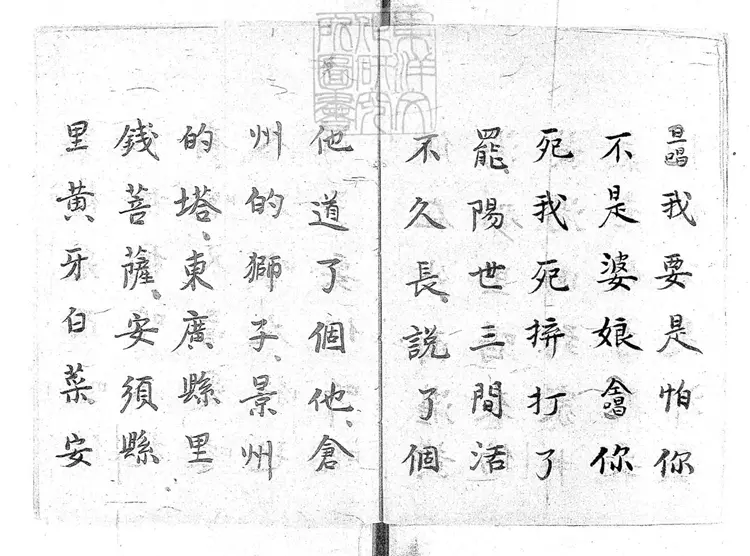 旦唱我要是怕你
不是婆娘仝唱你
死我死拚打了
罷陽世三間活
不久長說了個
他道了個他、倉
州的獅子、景州
的塔、東廣縣里
錢菩薩、安須縣
里黃牙白菜安